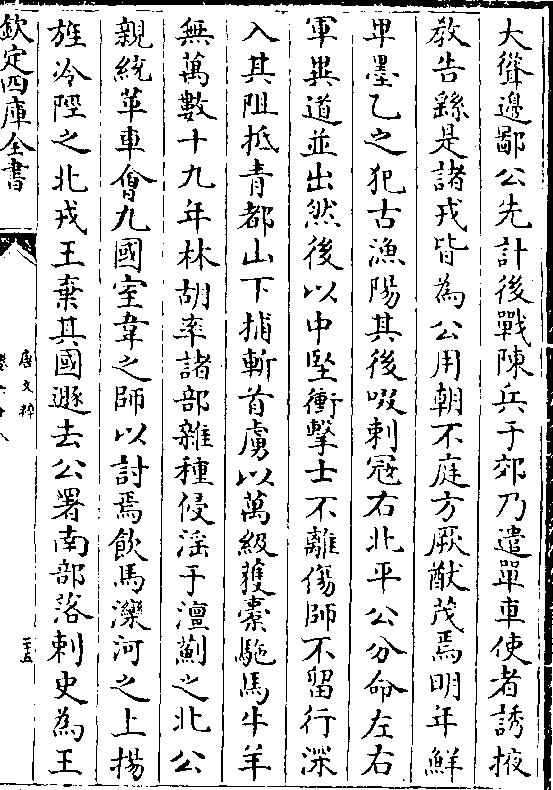 大聳邊鄙公先計後戰陳兵于郊乃遣單車使者誘掖
教告繇是諸戎皆為公用朝不庭方厥猷茂焉明年鮮
卑墨乙之犯古漁陽其後啜剌冦右北平公分命左右
軍異道並出然後以中堅衝擊士不離傷師不留行深
入其阻抵青都山下捕斬首虜以萬級獲橐駞馬牛羊
無萬數十九年林胡率諸部雜種侵淫于澶薊之北公
親統革車㑹九國室韋之師以討焉飲馬灤河之上揚
旌冷陘之北戎王棄其國遯去公署南部落剌史為王
欽定四庫全書
唐文粹
卷六十八
主五